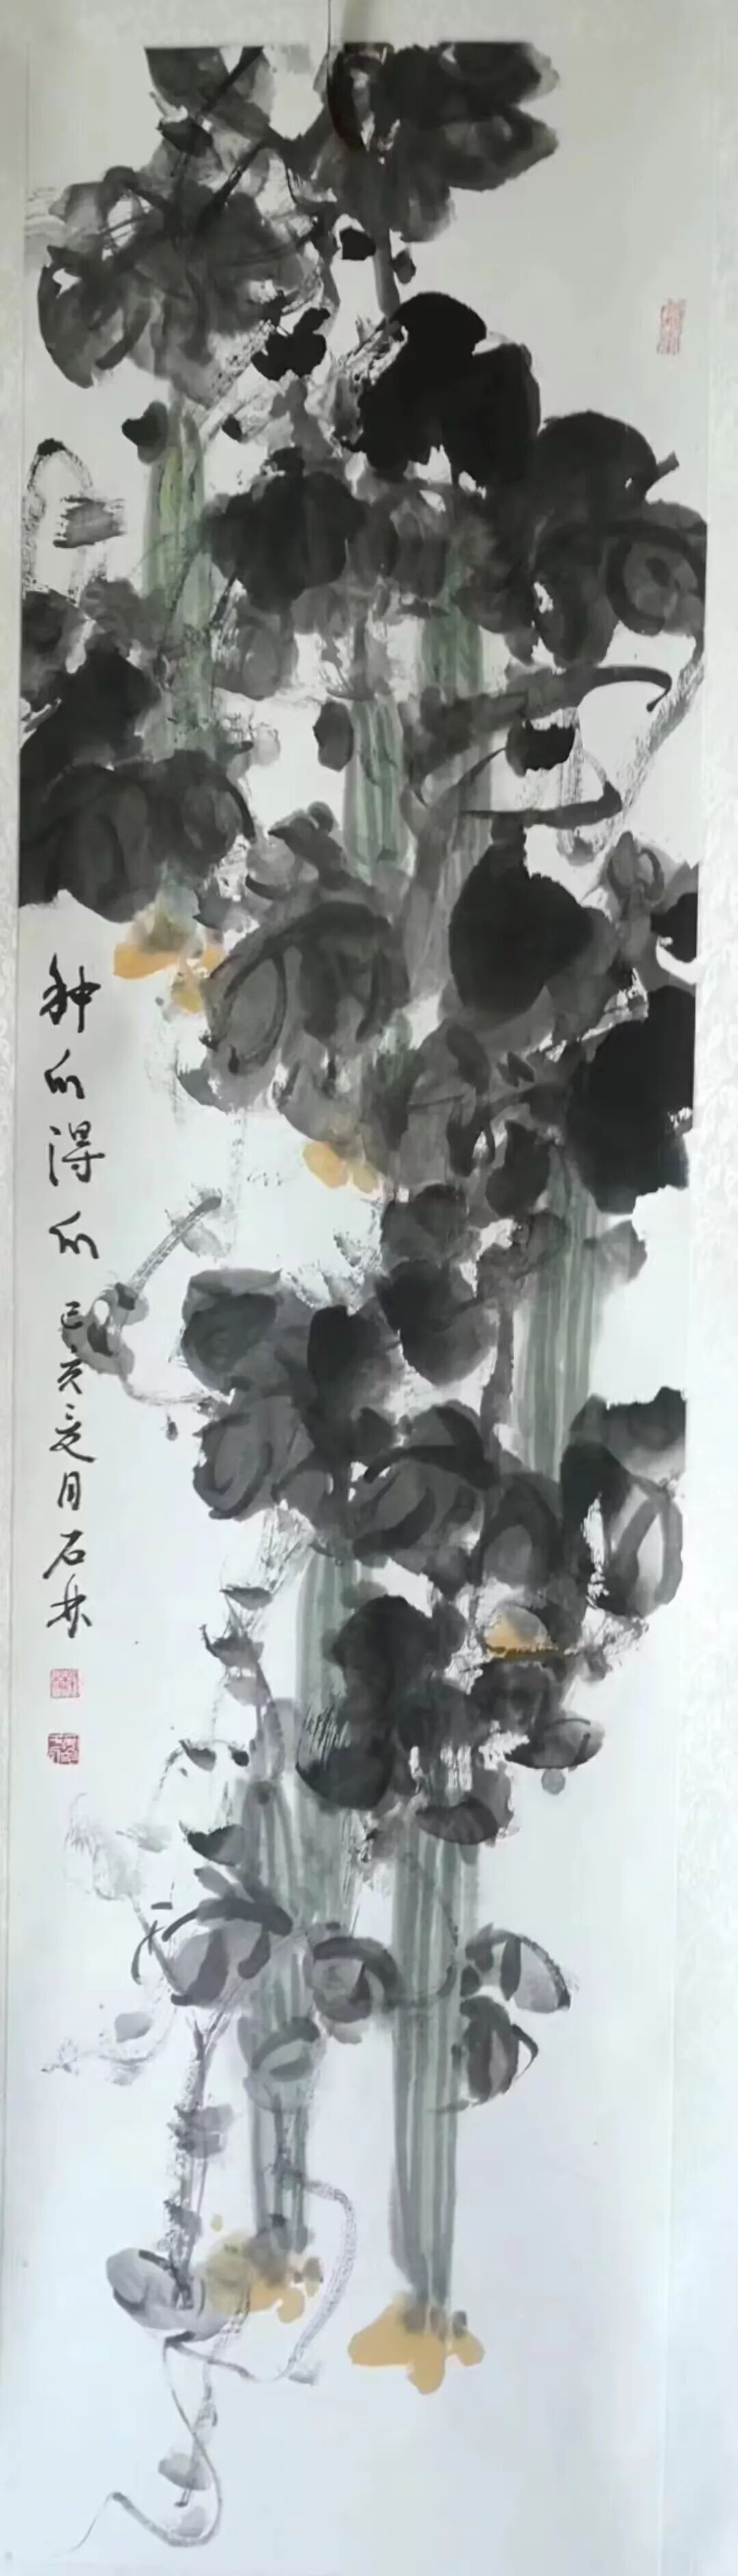 种瓜得瓜 己亥之夏月石林